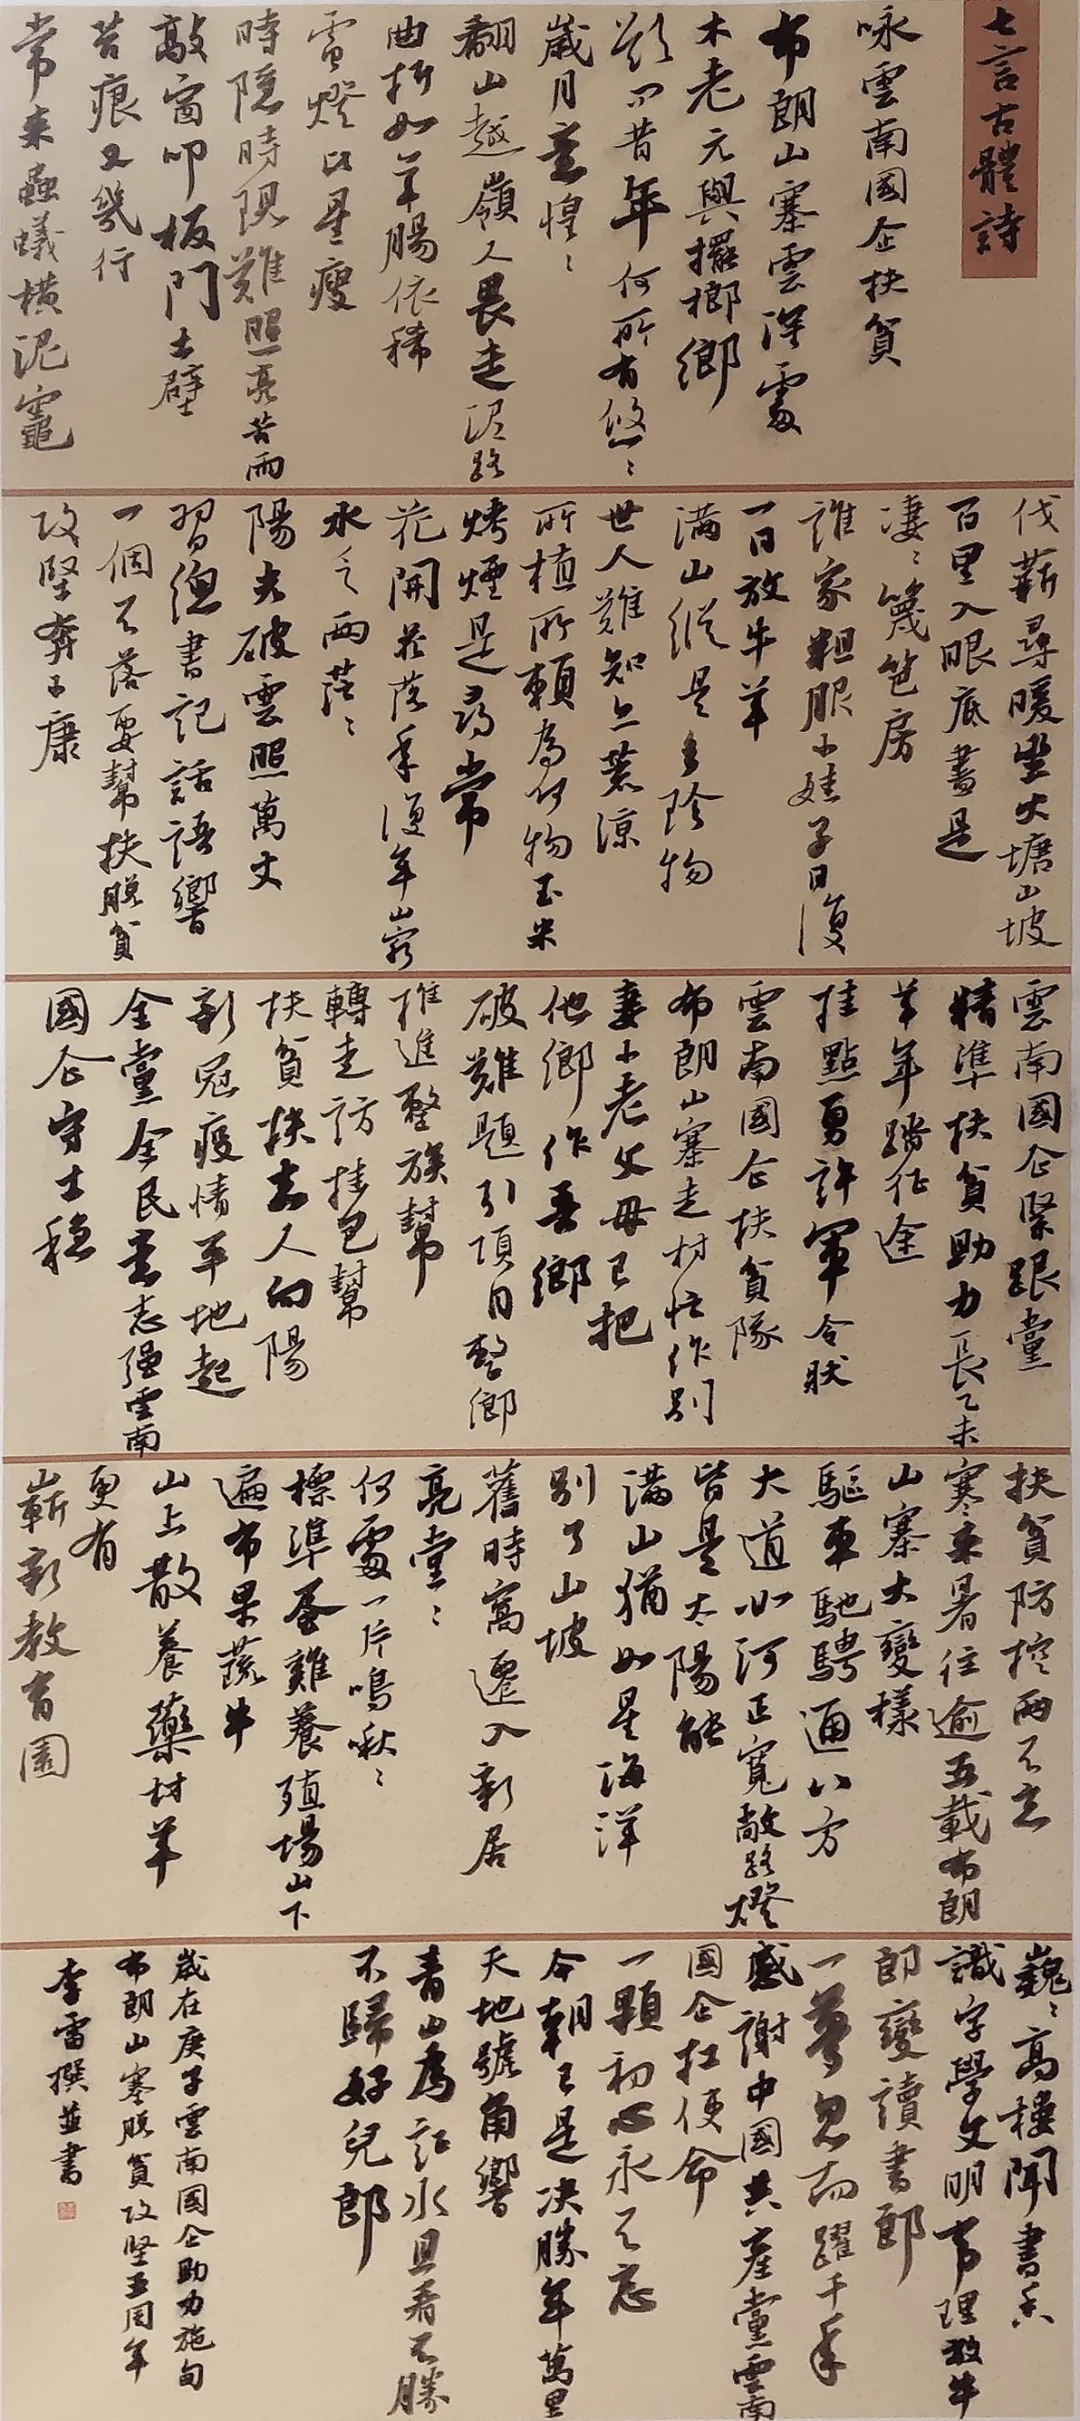 七言古體詩
咏雲南國企扶貧
布朗山寨雲深處
木老元與擺榔鄉
昔年何所有悠〻
歲月意惶〻
翻山越嶺人畏走泥路
曲折如羊腸依稀
雪燈比星瘦
時隱時現難照亮苦雨
敲窗叩板門土壁
苦痕又幾行
常來蟲蟻橫泥竈
伐薪尋暖坐火塘山坡
百里入眼底盡是
凄〻篾笆房
誰家粗服小娃子日復
一日放牛羊
滿山縱是多珍物
世人難知亦荒涼
所植所賴為何物玉米
烤煙是尋常
花開花落年復年山窮
水乏兩茫〻
陽光破雲照萬丈
習總書記話語響
一個不落要幫扶脫貧
攻堅奔小康
雲南國企緊跟黨
精準扶貧助力長乙未
羊年踏征途
挂點勇許軍令狀
雲南國企扶貧隊
布朗山寨走村忙作別
妻小老父母已把
他鄉作吾鄉
破難題引項目整鄉
推進整族幫
轉走訪挂包幫
扶貧扶志人向陽
新冠疫情平地起
全黨全民意志强雲南
國企守土穩
扶貧防控兩不忘
寒來暑往逾五載布朗
山寨大變樣
驅車馳騁通八方
大道如河正寬敞路燈
皆是太陽能
滿山猶如星海洋
別了山坡
舊時窩遷入新居
亮堂〻
何處一片鳴啾〻
標準蛋雞養殖場山下
遍布果蔬牛
山上散養藥材羊
更有
嶄新教育園
巍〻高樓聞書香
識字學文明事理放牛
郎變讀書郎
一夢忽而躍千年
感謝中國共產黨雲南
國企扛使命
一顆初心永不忘
今朝已是決勝年萬里
天地號角響
青山為証水且看不勝
不歸好兒郎
歲在庚子雲南國企助力施甸
布朗山寨脫貧攻堅五周年
李雷撰並書